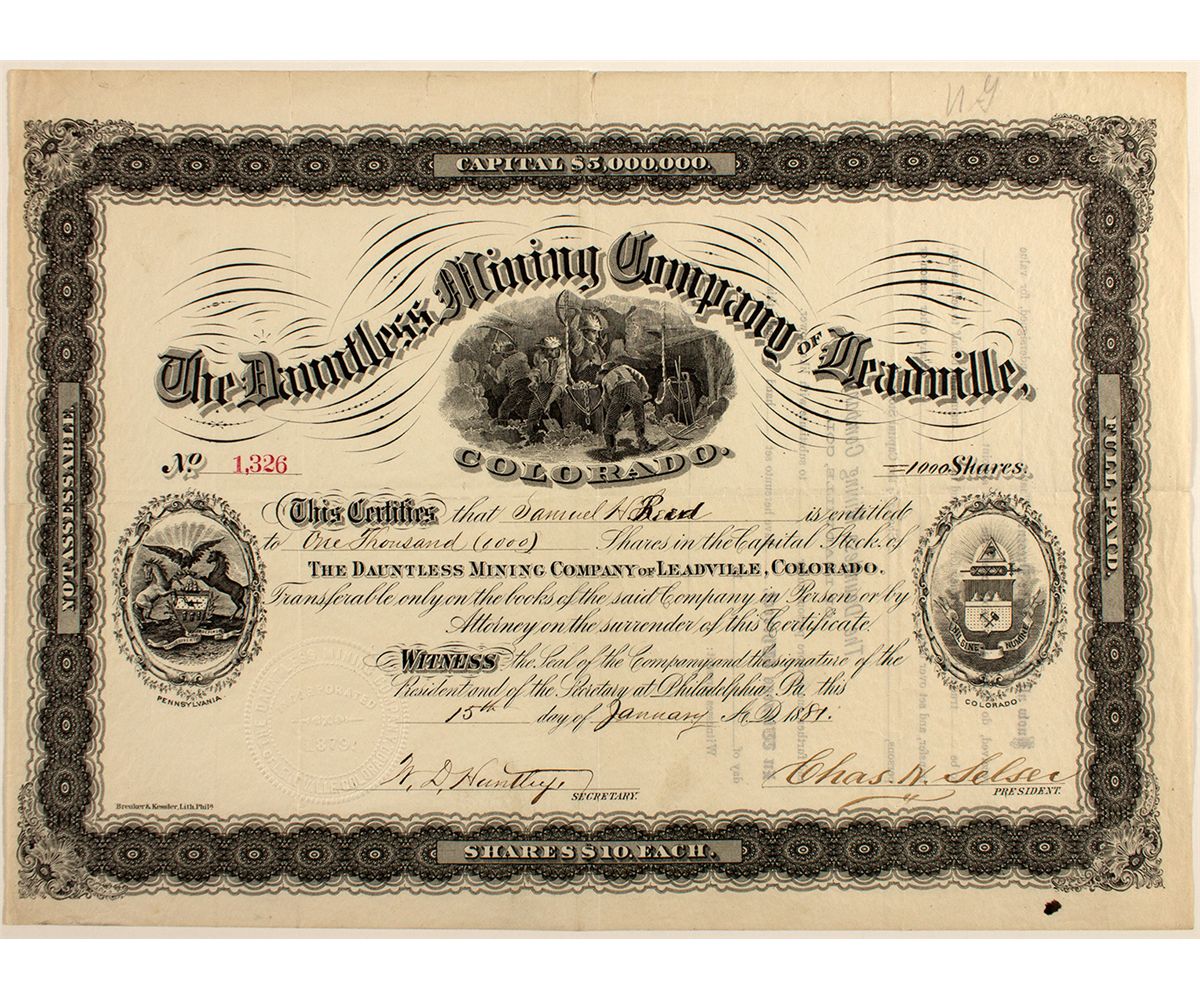 N G
CAPITAL $5,000,000.
The Dauntless Mining Company OF Leadville,
COLORADO.
No 1,326
=1000 Shares.
NOT ASSESSABLE.
FULL PAID.
This Certifies that Samuel H Reed is entitled
to One Thousand (1000) Shares in the Capital Stock of
THE DAUNTLESS MINING COMPANY OF LEADVILLE, COLORADO.
Transferable only on the books of the said Company in Person or by
Attorney on the surrender of this Certificate.
WITNESS the Seal of the Company and the signature of the
President and of the Secretary at Philadelphia, Pa. this
15th day of January A.D. 1881.
PENNSYLVANIA
COLORADO
INCORPORATED
1879
W. D. Huntley,
SECRETARY.
Chas. H. Selser
PRESIDENT.
Breuker & Kessler, Lith. Phila.
SHARES $10. EACH.